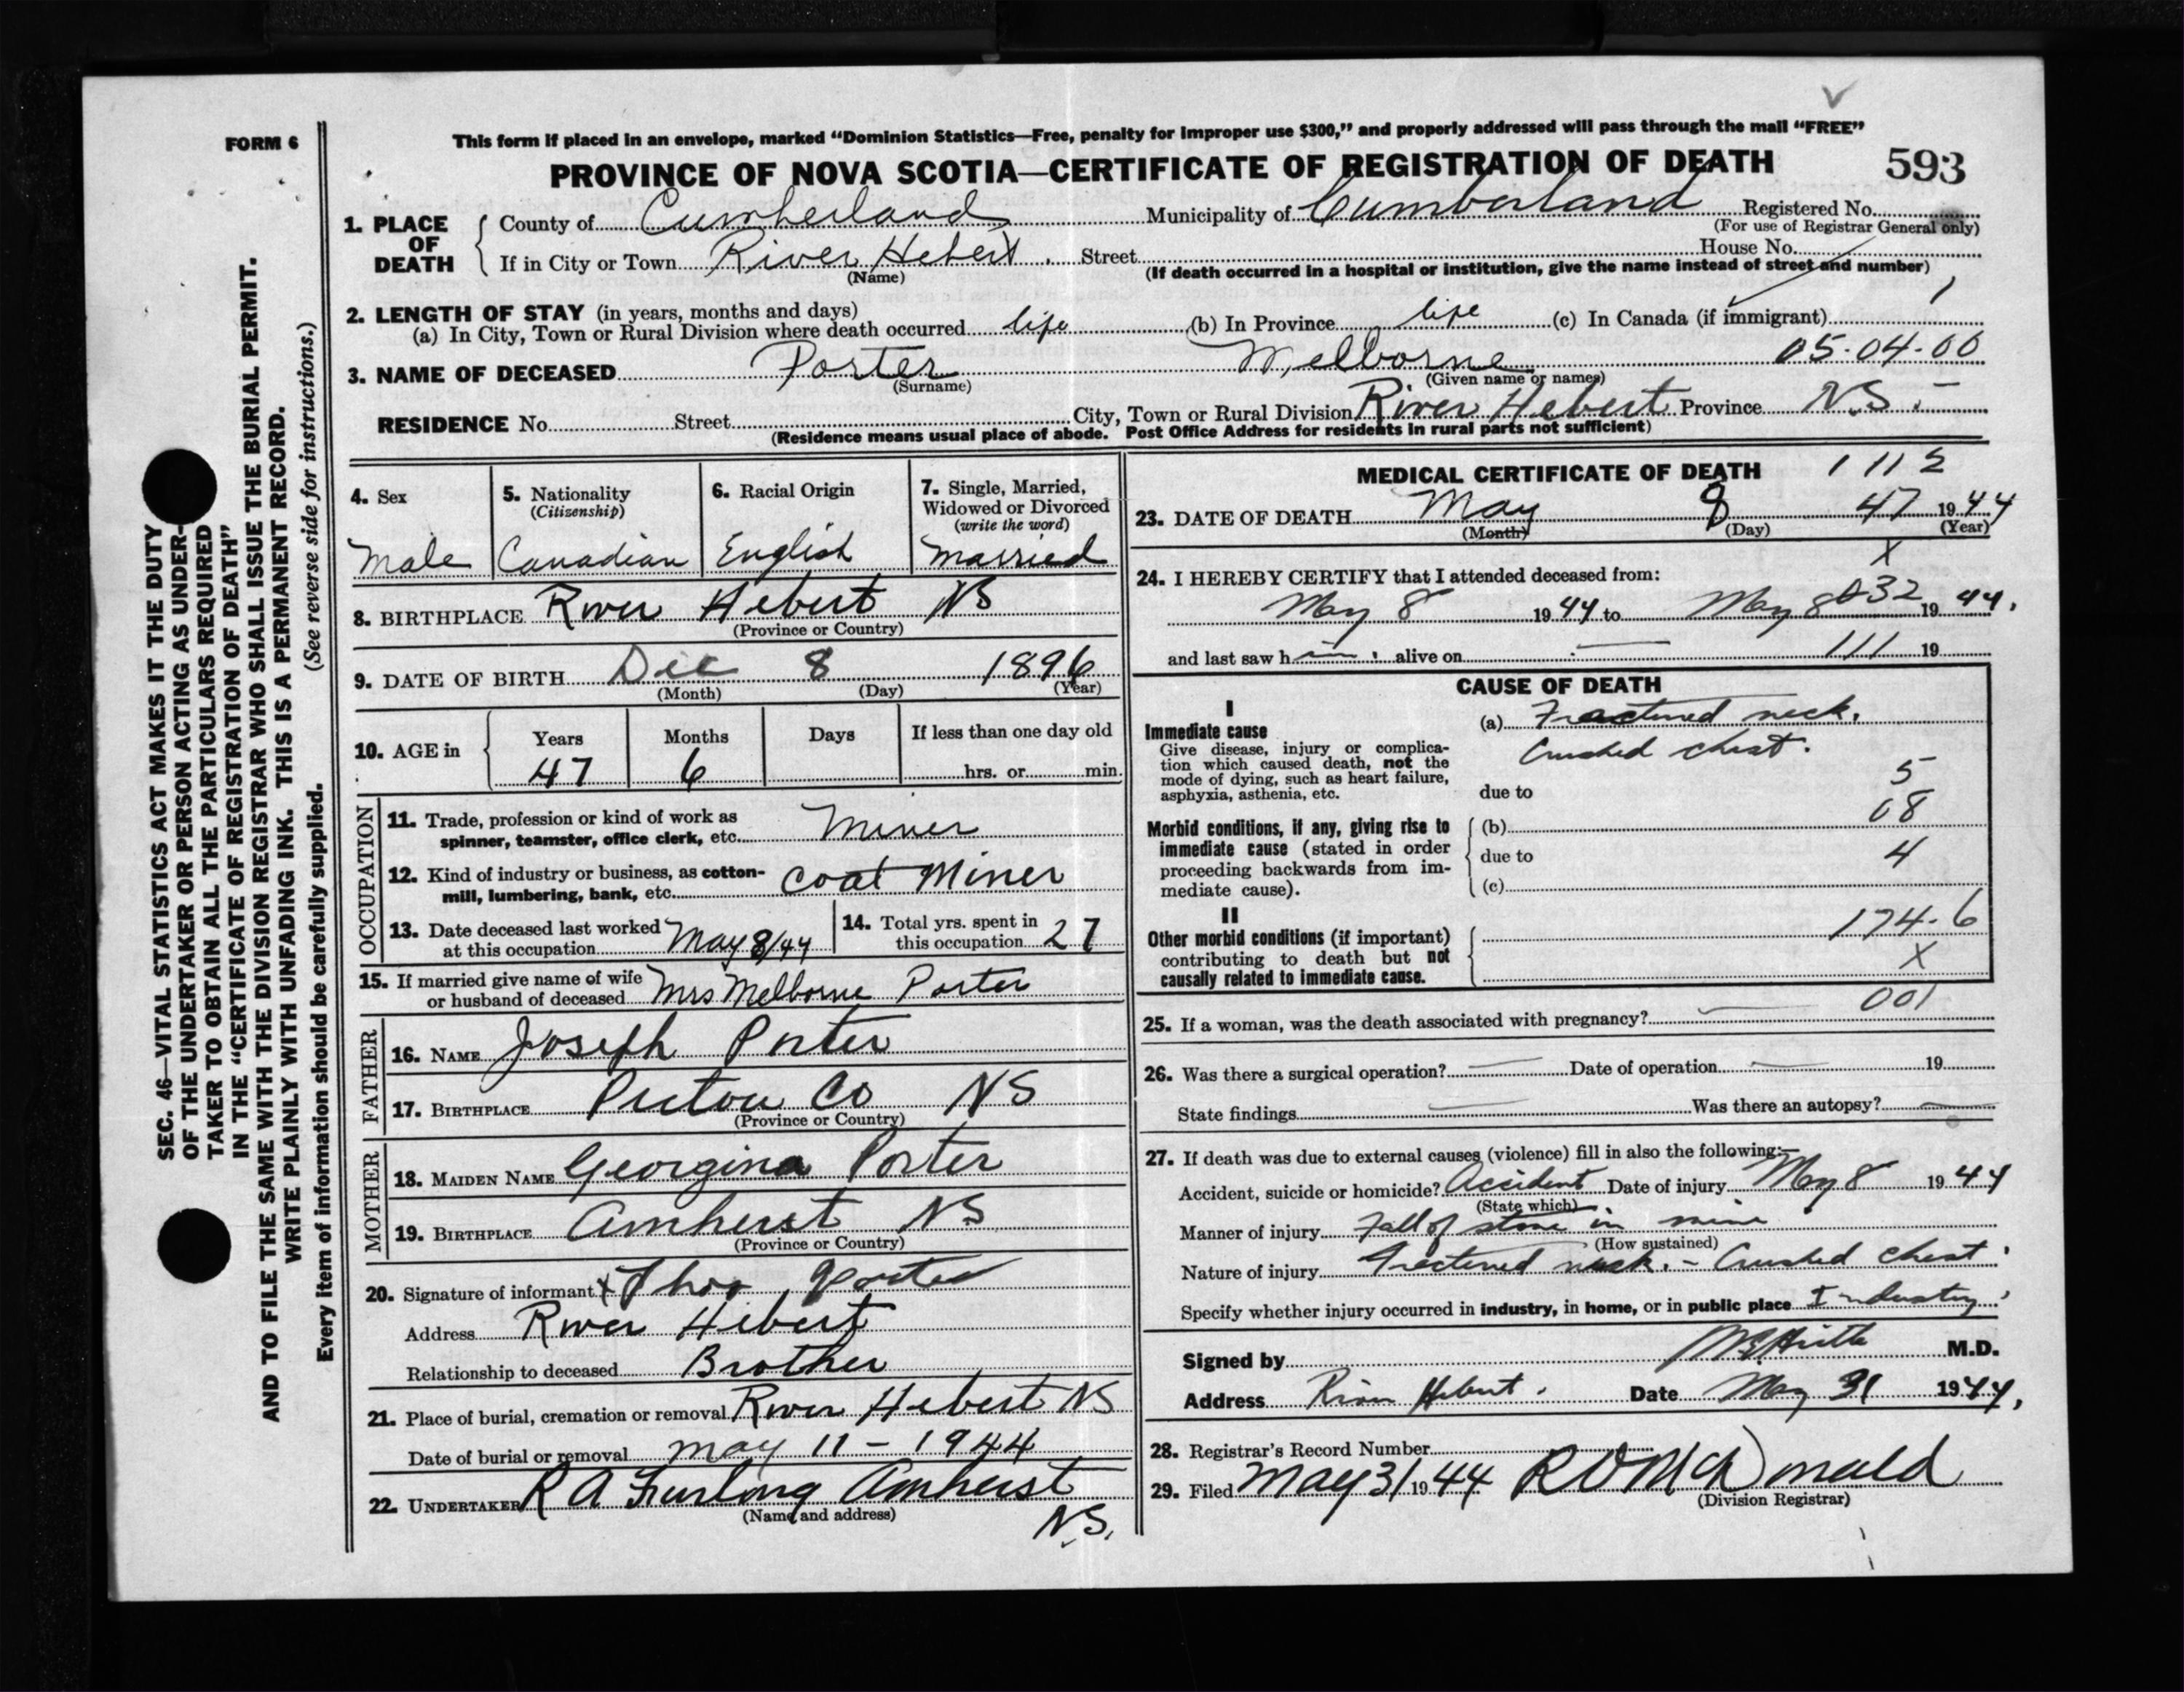 FORM 6
This form if placed in an envelope, marked "Dominion Statistics—Free, penalty for improper use $300," and properly addressed will pass through the mail "FREE"
PROVINCE OF NOVA SCOTIA—CERTIFICATE OF REGISTRATION OF DEATH 593
SEC. 46—VITAL STATISTICS ACT MAKES IT THE DUTY
OF THE UNDERTAKER OR PERSON ACTING AS UNDER-
TAKER TO OBTAIN ALL THE PARTICULARS REQUIRED
IN THE "CERTIFICATE OF REGISTRATION OF DEATH"
AND TO FILE THE SAME WITH THE DIVISION REGISTRAR WHO SHALL ISSUE THE BURIAL PERMIT.
WRITE PLAINLY WITH UNFADING INK. THIS IS A PERMANENT RECORD.
Every item of information should be carefully supplied. (See reverse side for instructions.)
1. PLACE OF DEATH County of Cumberland Municipality of Cumberland Registered No.
(For use of Registrar General only)
If in City or Town River Hebert Street House No.
(Name) (If death occurred in a hospital or institution, give the name instead of street and number)
2. LENGTH OF STAY (in years, months and days)
(a) In City, Town or Rural Division where death occurred life (b) In Province life (c) In Canada (if immigrant)
3. NAME OF DECEASED Porter Melborne 05.04.00
(Surname) (Given name or names)
RESIDENCE No. Street City, Town or Rural Division River Hebert Province N.S.
(Residence means usual place of abode. Post Office Address for residents in rural parts not sufficient)
4. Sex 5. Nationality 6. Racial Origin 7. Single, Married,
(Citizenship) Widowed or Divorced
(write the word)
Male Canadian English Married
8. BIRTHPLACE River Hebert NS
(Province or Country)
9. DATE OF BIRTH Dec 8 1896
(Month) (Day) (Year)
10. AGE in Years Months Days If less than one day old
47 6 hrs. or min.
OCCUPATION
11. Trade, profession or kind of work as
spinner, teamster, office clerk, etc. Miner
12. Kind of industry or business, as cotton-
mill, lumbering, bank, etc. Coal Miner
13. Date deceased last worked
at this occupation May 8/44
14. Total yrs. spent in
this occupation 27
15. If married give name of wife
or husband of deceased Mrs Melborne Porter
FATHER
16. NAME Joseph Porter
17. BIRTHPLACE Pictou Co NS
(Province or Country)
MOTHER
18. MAIDEN NAME Georgina Porter
19. BIRTHPLACE Amherst NS
(Province or Country)
20. Signature of informant x Thos Porter
Address River Hebert
Relationship to deceased Brother
21. Place of burial, cremation or removal River Hebert NS
Date of burial or removal May 11 - 1944
22. UNDERTAKER R A Furlong Amherst
(Name and address) N.S.
MEDICAL CERTIFICATE OF DEATH 1112
23. DATE OF DEATH May 8 47 1944
(Month) (Day) (Year)
X
24. I HEREBY CERTIFY that I attended deceased from:
May 8 1944 to May 8 32 1944.
and last saw him alive on 111 19
CAUSE OF DEATH
I
Immediate cause
Give disease, injury or complica-
tion which caused death, not the
mode of dying, such as heart failure,
asphyxia, asthenia, etc.
(a) Fractured neck.
Crushed chest.
5
due to
08
Morbid conditions, if any, giving rise to
immediate cause (stated in order
proceeding backwards from im-
mediate cause).
(b)
due to 4
(c)
II
Other morbid conditions (if important)
contributing to death but not
causally related to immediate cause.
174.6
X
001
25. If a woman, was the death associated with pregnancy?
26. Was there a surgical operation? Date of operation 19
State findings Was there an autopsy?
27. If death was due to external causes (violence) fill in also the following:—
Accident, suicide or homicide? Accident Date of injury May 8 1944
(State which)
Manner of injury Fall of stone in mine
(How sustained)
Nature of injury Fractured neck. - Crushed chest.
Specify whether injury occurred in industry, in home, or in public place Industry
Signed by M.D.
Address River Hebert. Date May 31 1944.
28. Registrar's Record Number
29. Filed May 31 1944 McDonald
(Division Registrar)